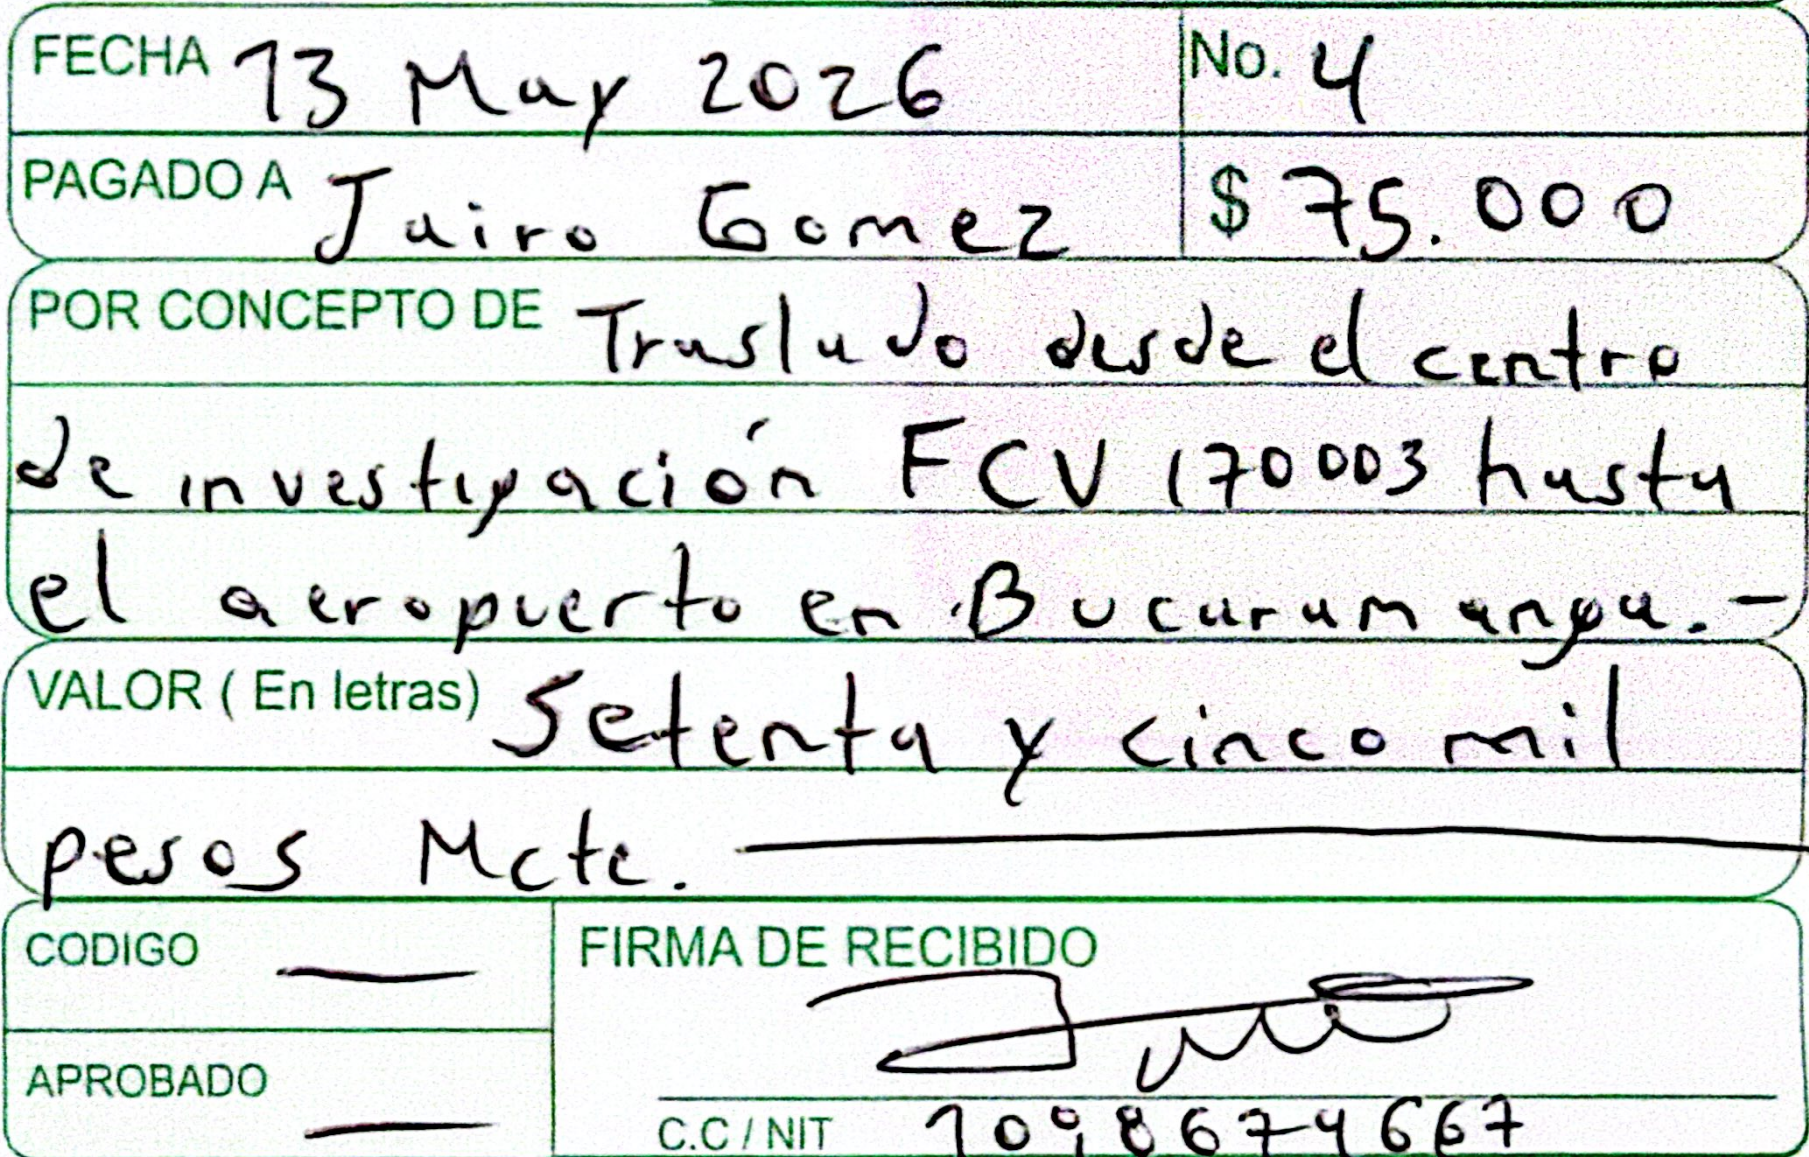 FECHA 13 May 2026 No. 4
PAGADO A Jairo Gomez $ 75.000
POR CONCEPTO DE Traslado desde el centro
de investigación FCV 170003 hasta
el aeropuerto en Bucaramanga. -
VALOR ( En letras) Setenta y cinco mil
pesos Mcte.
CODIGO —
FIRMA DE RECIBIDO
APROBADO —
C.C / NIT 1098674667